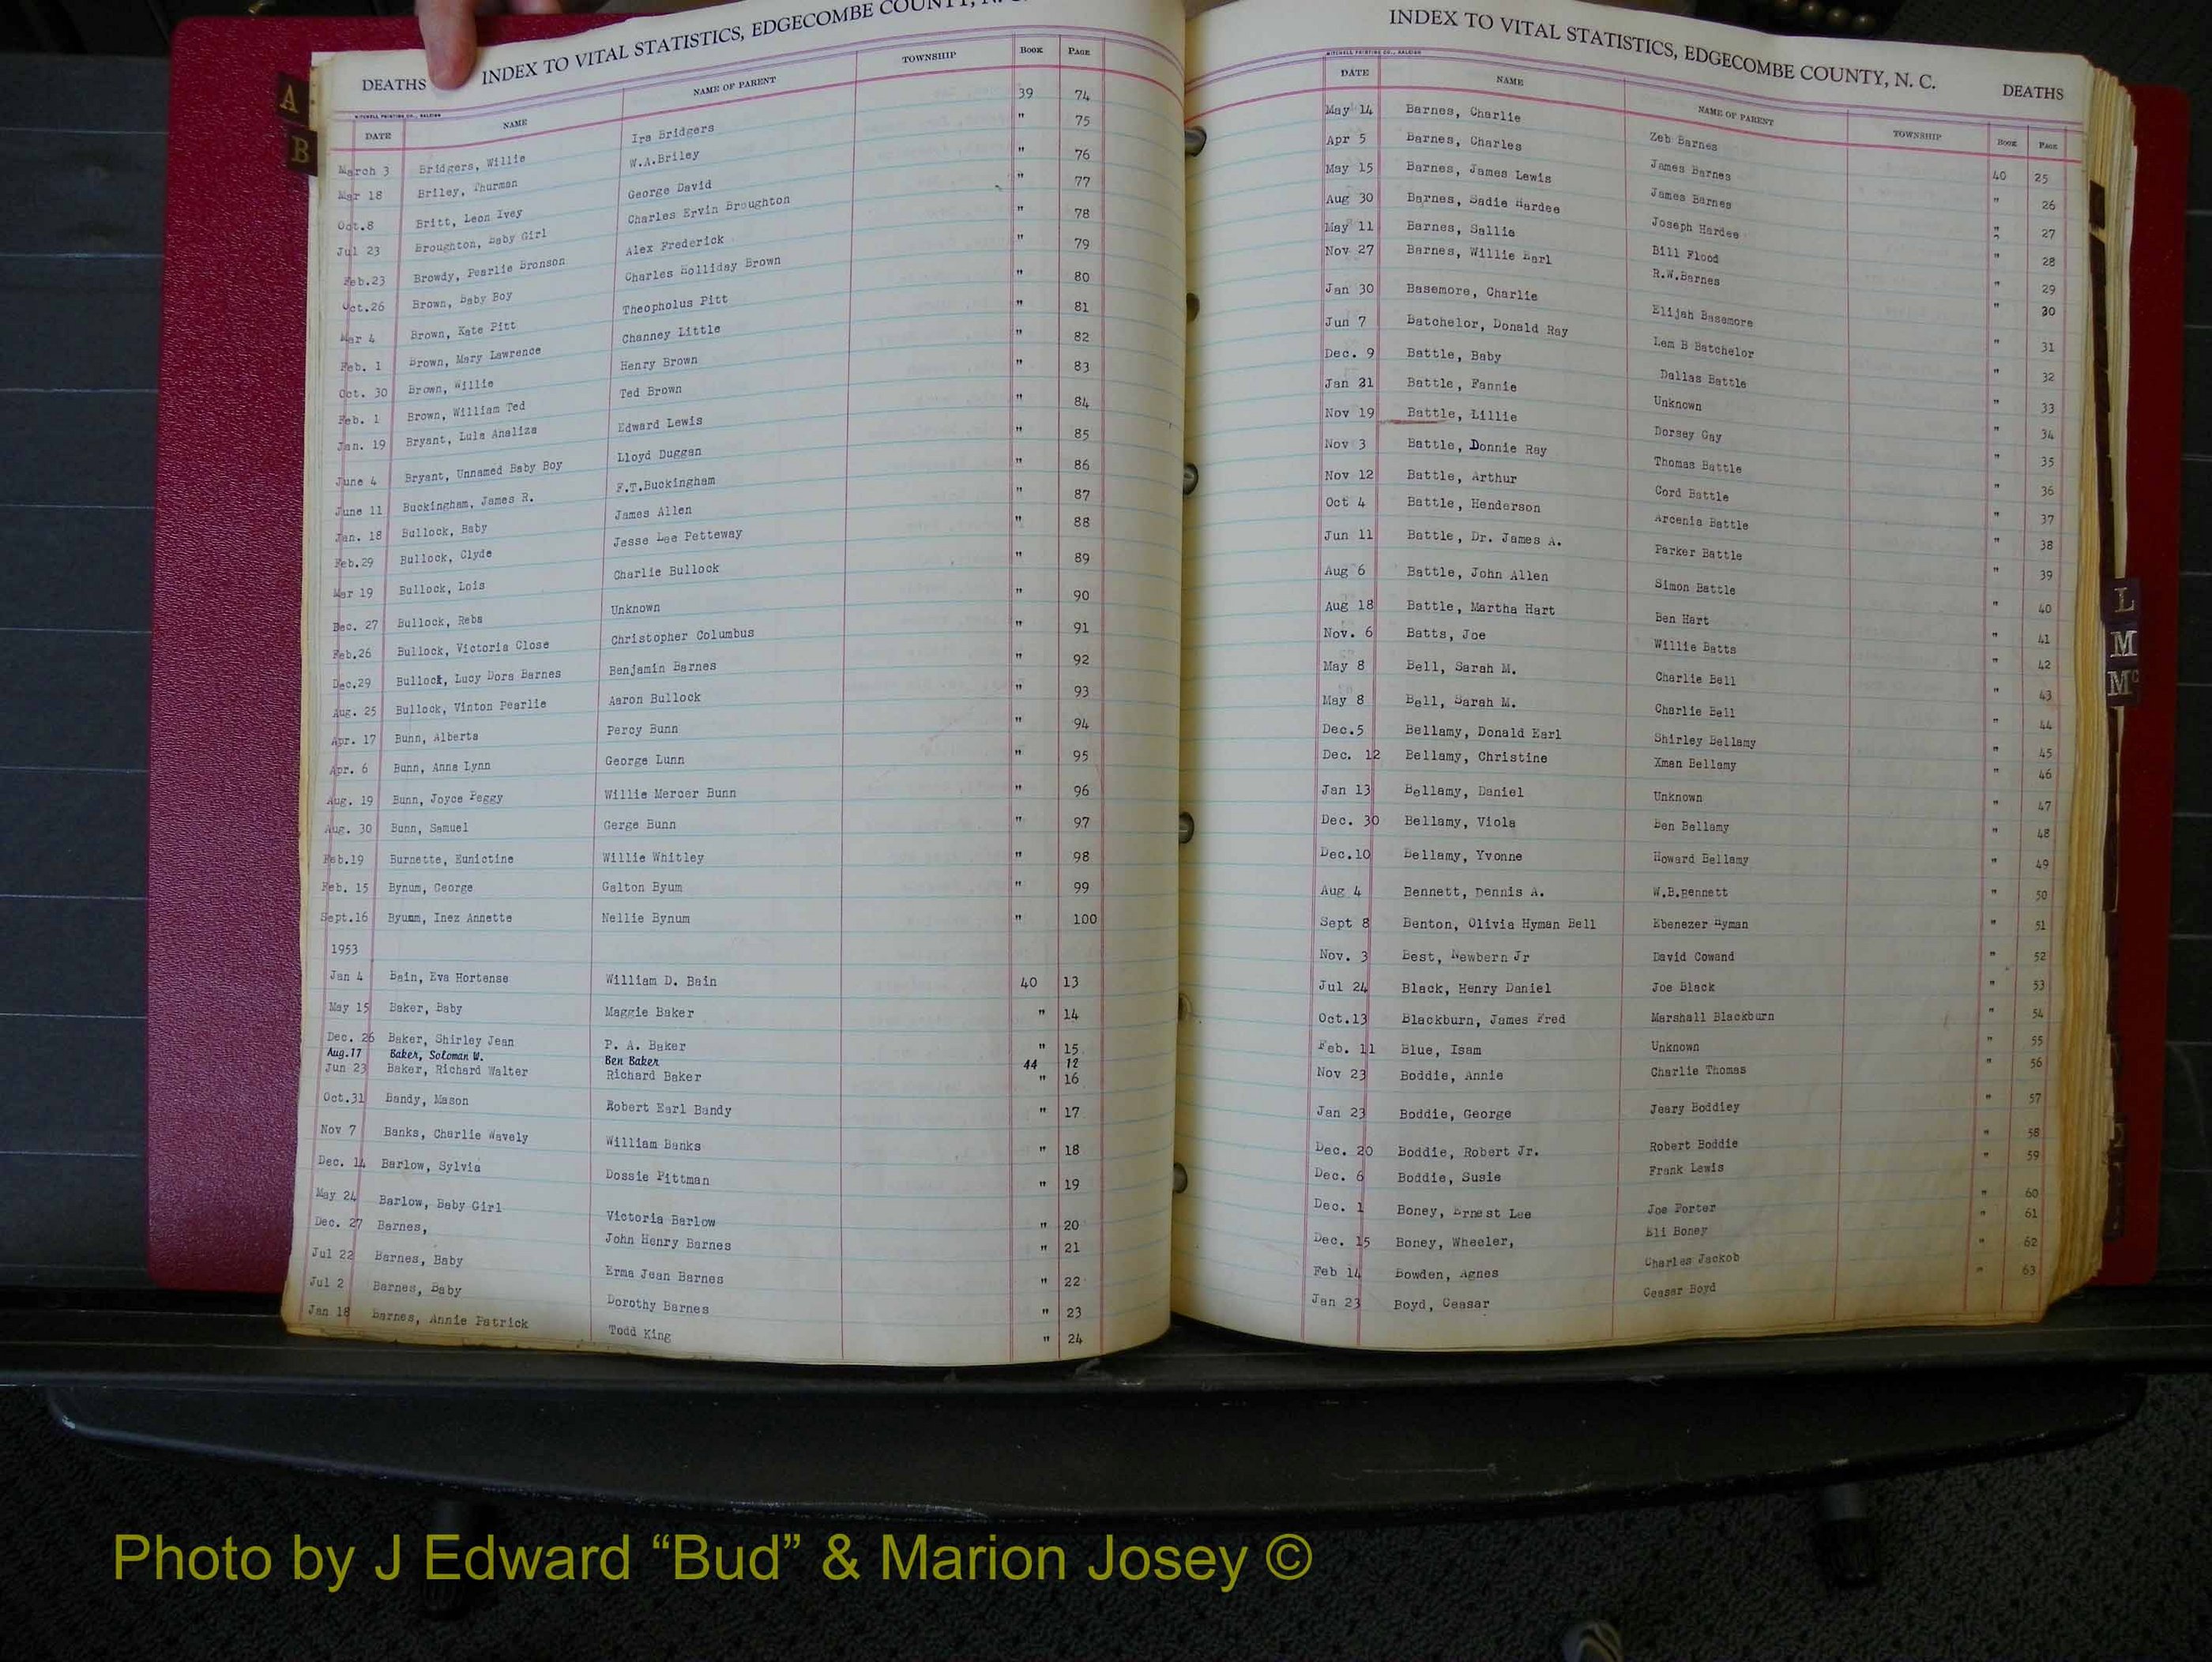 A
B
INDEX TO VITAL STATISTICS, EDGECOMBE COUNTY, N. C.
DEATHS
MITCHELL PRINTING CO., RALEIGH
DATE NAME NAME OF PARENT TOWNSHIP BOOK PAGE
March 3 Bridgers, Willie Ira Bridgers 39 74
Mar 18 Briley, Thurman W.A.Briley " 75
Oct.8 Britt, Leon Ivey George David " 76
Jul 23 Broughton, Baby Girl Charles Ervin Broughton " 77
Feb.23 Browdy, Pearlie Bronson Alex Frederick " 78
Oct.26 Brown, Baby Boy Charles Holliday Brown " 79
Mar 4 Brown, Kate Pitt Theopholus Pitt " 80
Feb. 1 Brown, Mary Lawrence Channey Little " 81
Oct. 30 Brown, Willie Henry Brown " 82
Feb. 1 Brown, William Ted Ted Brown " 83
Jan. 19 Bryant, Lula Analiza Edward Lewis " 84
June 4 Bryant, Unnamed Baby Boy Lloyd Duggan " 85
June 11 Buckingham, James R. F.T.Buckingham " 86
Jan. 18 Bullock, Baby James Allen " 87
Feb.29 Bullock, Clyde Jesse Lee Petteway " 88
Mar 19 Bullock, Lois Charlie Bullock " 89
Dec. 27 Bullock, Reba Unknown " 90
Feb.26 Bullock, Victoria Close Christopher Columbus " 91
Dec.29 Bullock, Lucy Dora Barnes Benjamin Barnes " 92
Aug. 25 Bullock, Vinton Pearlie Aaron Bullock " 93
Apr. 17 Bunn, Alberta Percy Bunn " 94
Apr. 6 Bunn, Anna Lynn George Lunn " 95
Aug. 19 Bunn, Joyce Peggy Willie Mercer Bunn " 96
Aug. 30 Bunn, Samuel Gerge Bunn " 97
Feb.19 Burnette, Eunictine Willie Whitley " 98
Feb. 15 Bynum, George Galton Byum " 99
Sept.16 Byumm, Inez Annette Nellie Bynum " 100
1953
Jan 4 Bain, Eva Hortense William D. Bain 40 13
May 15 Baker, Baby Maggie Baker " 14
Dec. 26 Baker, Shirley Jean P. A. Baker " 15
Aug.17 Baker, Soloman W. Ben Baker 44 12
Jun 23 Baker, Richard Walter Richard Baker " 16
Oct.31 Bandy, Mason Robert Earl Bandy " 17
Nov 7 Banks, Charlie Wavely William Banks " 18
Dec. 14 Barlow, Sylvia Dossie Pittman " 19
May 24 Barlow, Baby Girl Victoria Barlow " 20
Dec. 27 Barnes, John Henry Barnes " 21
Jul 22 Barnes, Baby Erma Jean Barnes " 22
Jul 2 Barnes, Baby Dorothy Barnes " 23
Jan 18 Barnes, Annie Patrick Todd King " 24
INDEX TO VITAL STATISTICS, EDGECOMBE COUNTY, N. C.
DEATHS
MITCHELL PRINTING CO., RALEIGH
DATE NAME NAME OF PARENT TOWNSHIP BOOK PAGE
May 14 Barnes, Charlie Zeb Barnes 40 25
Apr 5 Barnes, Charles James Barnes " 26
May 15 Barnes, James Lewis James Barnes " 27
Aug 30 Barnes, Sadie Hardee Joseph Hardee " 28
May 11 Barnes, Sallie Bill Flood " 29
Nov 27 Barnes, Willie Earl R.W.Barnes " 30
Jan 30 Basemore, Charlie Elijah Basemore " 31
Jun 7 Batchelor, Donald Ray Lem B Batchelor " 32
Dec. 9 Battle, Baby Dallas Battle " 33
Jan 21 Battle, Fannie Unknown " 34
Nov 19 Battle, Lillie Dorsey Gay " 35
Nov 3 Battle, Donnie Ray Thomas Battle " 36
Nov 12 Battle, Arthur Cord Battle " 37
Oct 4 Battle, Henderson Arcenia Battle " 38
Jun 11 Battle, Dr. James A. Parker Battle " 39
Aug 6 Battle, John Allen Simon Battle " 40
Aug 18 Battle, Martha Hart Ben Hart " 41
Nov. 6 Batts, Joe Willie Batts " 42
May 8 Bell, Sarah M. Charlie Bell " 43
May 8 Bell, Sarah M. Charlie Bell " 44
Dec.5 Bellamy, Donald Earl Shirley Bellamy " 45
Dec. 12 Bellamy, Christine Xman Bellamy " 46
Jan 13 Bellamy, Daniel Unknown " 47
Dec. 30 Bellamy, Viola Ben Bellamy " 48
Dec.10 Bellamy, Yvonne Howard Bellamy " 49
Aug 4 Bennett, Dennis A. W.B.Bennett " 50
Sept 8 Benton, Olivia Hyman Bell Ebenezer Hyman " 51
Nov. 3 Best, Newbern Jr David Cowand " 52
Jul 24 Black, Henry Daniel Joe Black " 53
Oct.13 Blackburn, James Fred Marshall Blackburn " 54
Feb. 11 Blue, Isam Unknown " 55
Nov 23 Boddie, Annie Charlie Thomas " 56
Jan 23 Boddie, George Jeary Boddiey " 57
Dec. 20 Boddie, Robert Jr. Robert Boddie " 58
Dec. 6 Boddie, Susie Frank Lewis " 59
Dec. 1 Boney, Ernest Lee Joe Porter " 60
Dec. 15 Boney, Wheeler, Eli Boney " 61
Feb 14 Bowden, Agnes Charles Jackob " 62
Jan 23 Boyd, Ceasar Ceasar Boyd " 63
L
M
Mc
Photo by J Edward “Bud” & Marion Josey ©